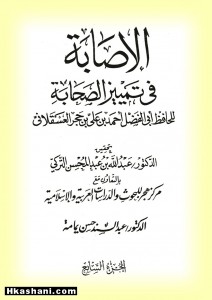 Hkashani.com
الإصابة
في تمييز الصحابة
للحافظ أبي الفضل أحمد بن علي بن حجر العسقلاني
تحقيق
الدكتور عبد الله بن عبد المحسن التركي
بالتعاون مع
مركز هجر للبحوث والدراسات العربية والإسلامية
الدكتور عبد السند حسن يمامة
الجزء السابع
Hkashani.com